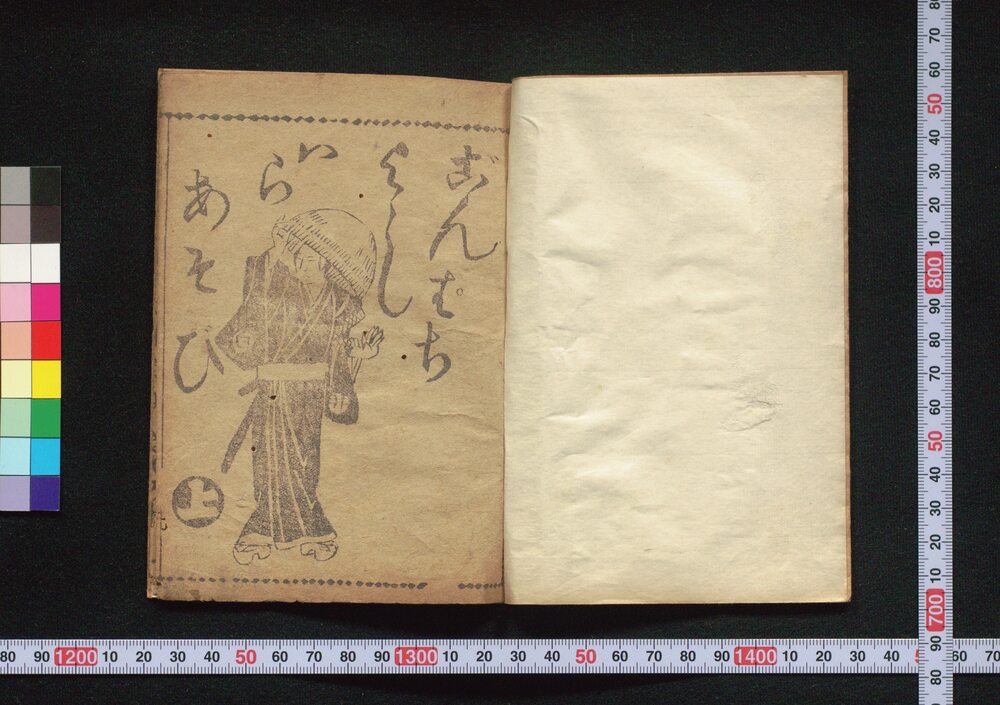 ごんはち
よし
ハら
あそび
上
80 70 60 50 40 30 20 10 800 90 80 70 60 50 40 30 20 10 700 90 80
80 90 1200 10 20 30 40 50 60 70 80 90 1300 10 20 30 40 50 60 70 80 90 1400 10 20 30 40 60 70